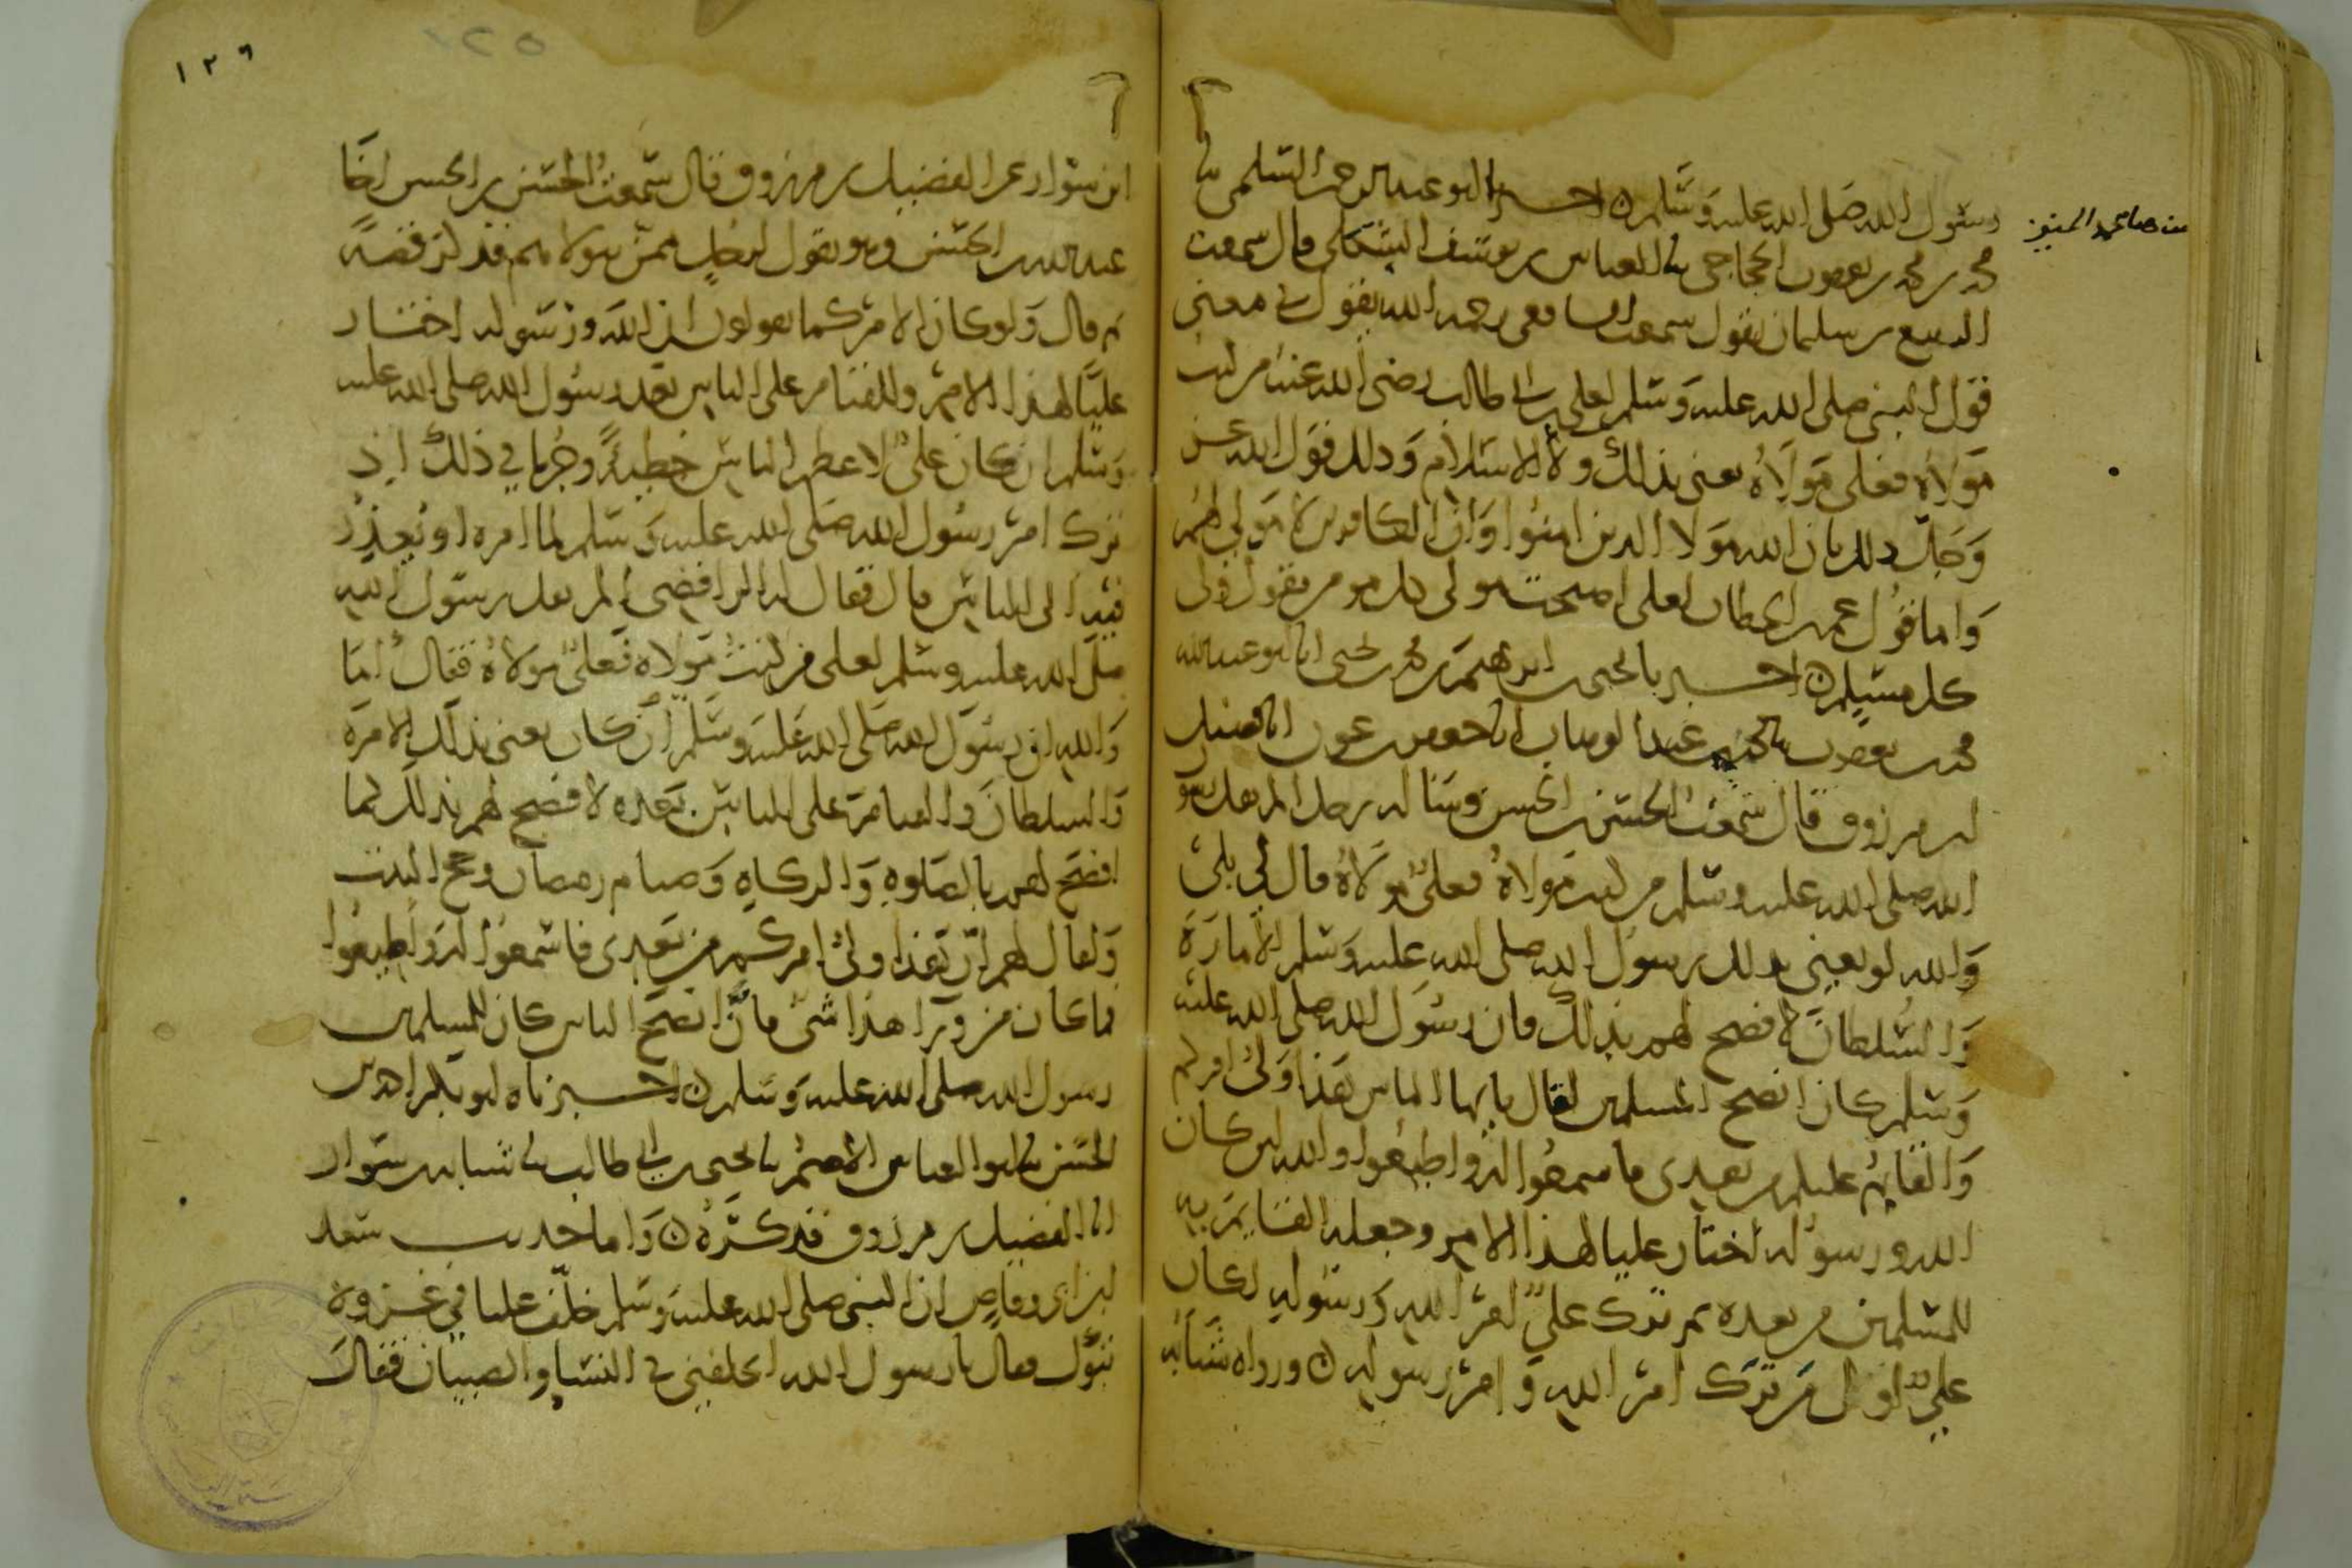 رسول الله صلى الله عليه وسلم ن اخبرنا ابو عبد الرحمن السلمي نا
من صاحبي المنيز
محمد بن محمد بن يعقوب الحجاجي نا العباس بن يوسف الشكلي قال سمعت
الربيع بن سليمان يقول سمعت الشافعي رحمه الله يقول في معنى
قول النبي صلى الله عليه وسلم لعلي بن ابي طالب رضي الله عنه من كنت
مولاه فعلي مولاه يعني بذلك ولاء الاسلام وذلك قول الله عز
وجل ذلك بان الله مولا الذين امنوا وان الكافرين لا مولى لهم
واما قول عمر بن الخطاب لعلي اصبحت مولى كل مومن يقول ولي
كل مسلم ن اخبرنا يحيى بن ابرهيم بن محمد بن يحيى انا ابو عبد الله
محمد بن يعقوب نا محمد بن عبد الوهاب انا جعفر بن عون انا فضيل
بن مرزوق قال سمعت الحسن بن الحسن وساله رجل الم يقل رسول
الله صلى الله عليه وسلم من كنت مولاه فعلي مولاه قال لي بلى
والله لو يعني بذلك رسول الله صلى الله عليه وسلم الامارة
والسلطان لافصح لهم بذلك فان رسول الله صلى الله عليه
وسلم كان انصح للمسلمين لقال يايها الناس هذا ولي امركم
والقايم عليكم من بعدي فاسمعوا له واطيعوا والله لين كان
الله ورسوله اختار عليا لهذا الامر وجعله القايم به
للمسلمين من بعده ثم ترك علي امر الله ورسوله لكان
علي اول من ترك امر الله وامر رسوله ن ورواه شبابه
١٢٦
١٢٥
ابن سوار عن الفضيل بن مرزوق قال سمعت الحسن بن الحسن اخا
عبد الله بن الحسن وهو يقول لرجل ممن يتولاهم فذكر قصة
ثم قال ولو كان الامر كما يقولون ان الله ورسوله اختار
عليا لهذا الامر وللقيام على الناس بعد رسول الله صلى الله عليه
وسلم ان كان علي لاعظم الناس خطية وجرما في ذلك اذ
ترك امر رسول الله صلى الله عليه وسلم لما امره او يعذر
فيه الى الناس قال فقال له الرافضي الم يقل رسول الله
صلى الله عليه وسلم لعلي من كنت مولاه فعلي مولاه فقال اما
والله ان رسول الله صلى الله عليه وسلم ان كان يعني بذلك الامرة
والسلطان والقيام على الناس بعده لافصح لهم بذلك كما
افصح لهم بالصلوة والزكاة وصيام رمضان وحج البيت
ولقال لهم ان هذا ولي امركم من بعدي فاسمعوا له واطيعوا
فما كان من ورا هذا شي فان انصح الناس كان للمسلمين
رسول الله صلى الله عليه وسلم ن اخبرناه ابو بكر احمد بن
الحسن نا ابو العباس الاصم نا يحيى بن ابي طالب نا شبابه بن سوار
انا الفضيل بن مرزوق فذكره ن واما حديث سعد
بن ابي وقاص ان النبي صلى الله عليه وسلم خلف عليا في غزوة
تبوك فقال يا رسول الله اتخلفني في النسا والصبيان فقال